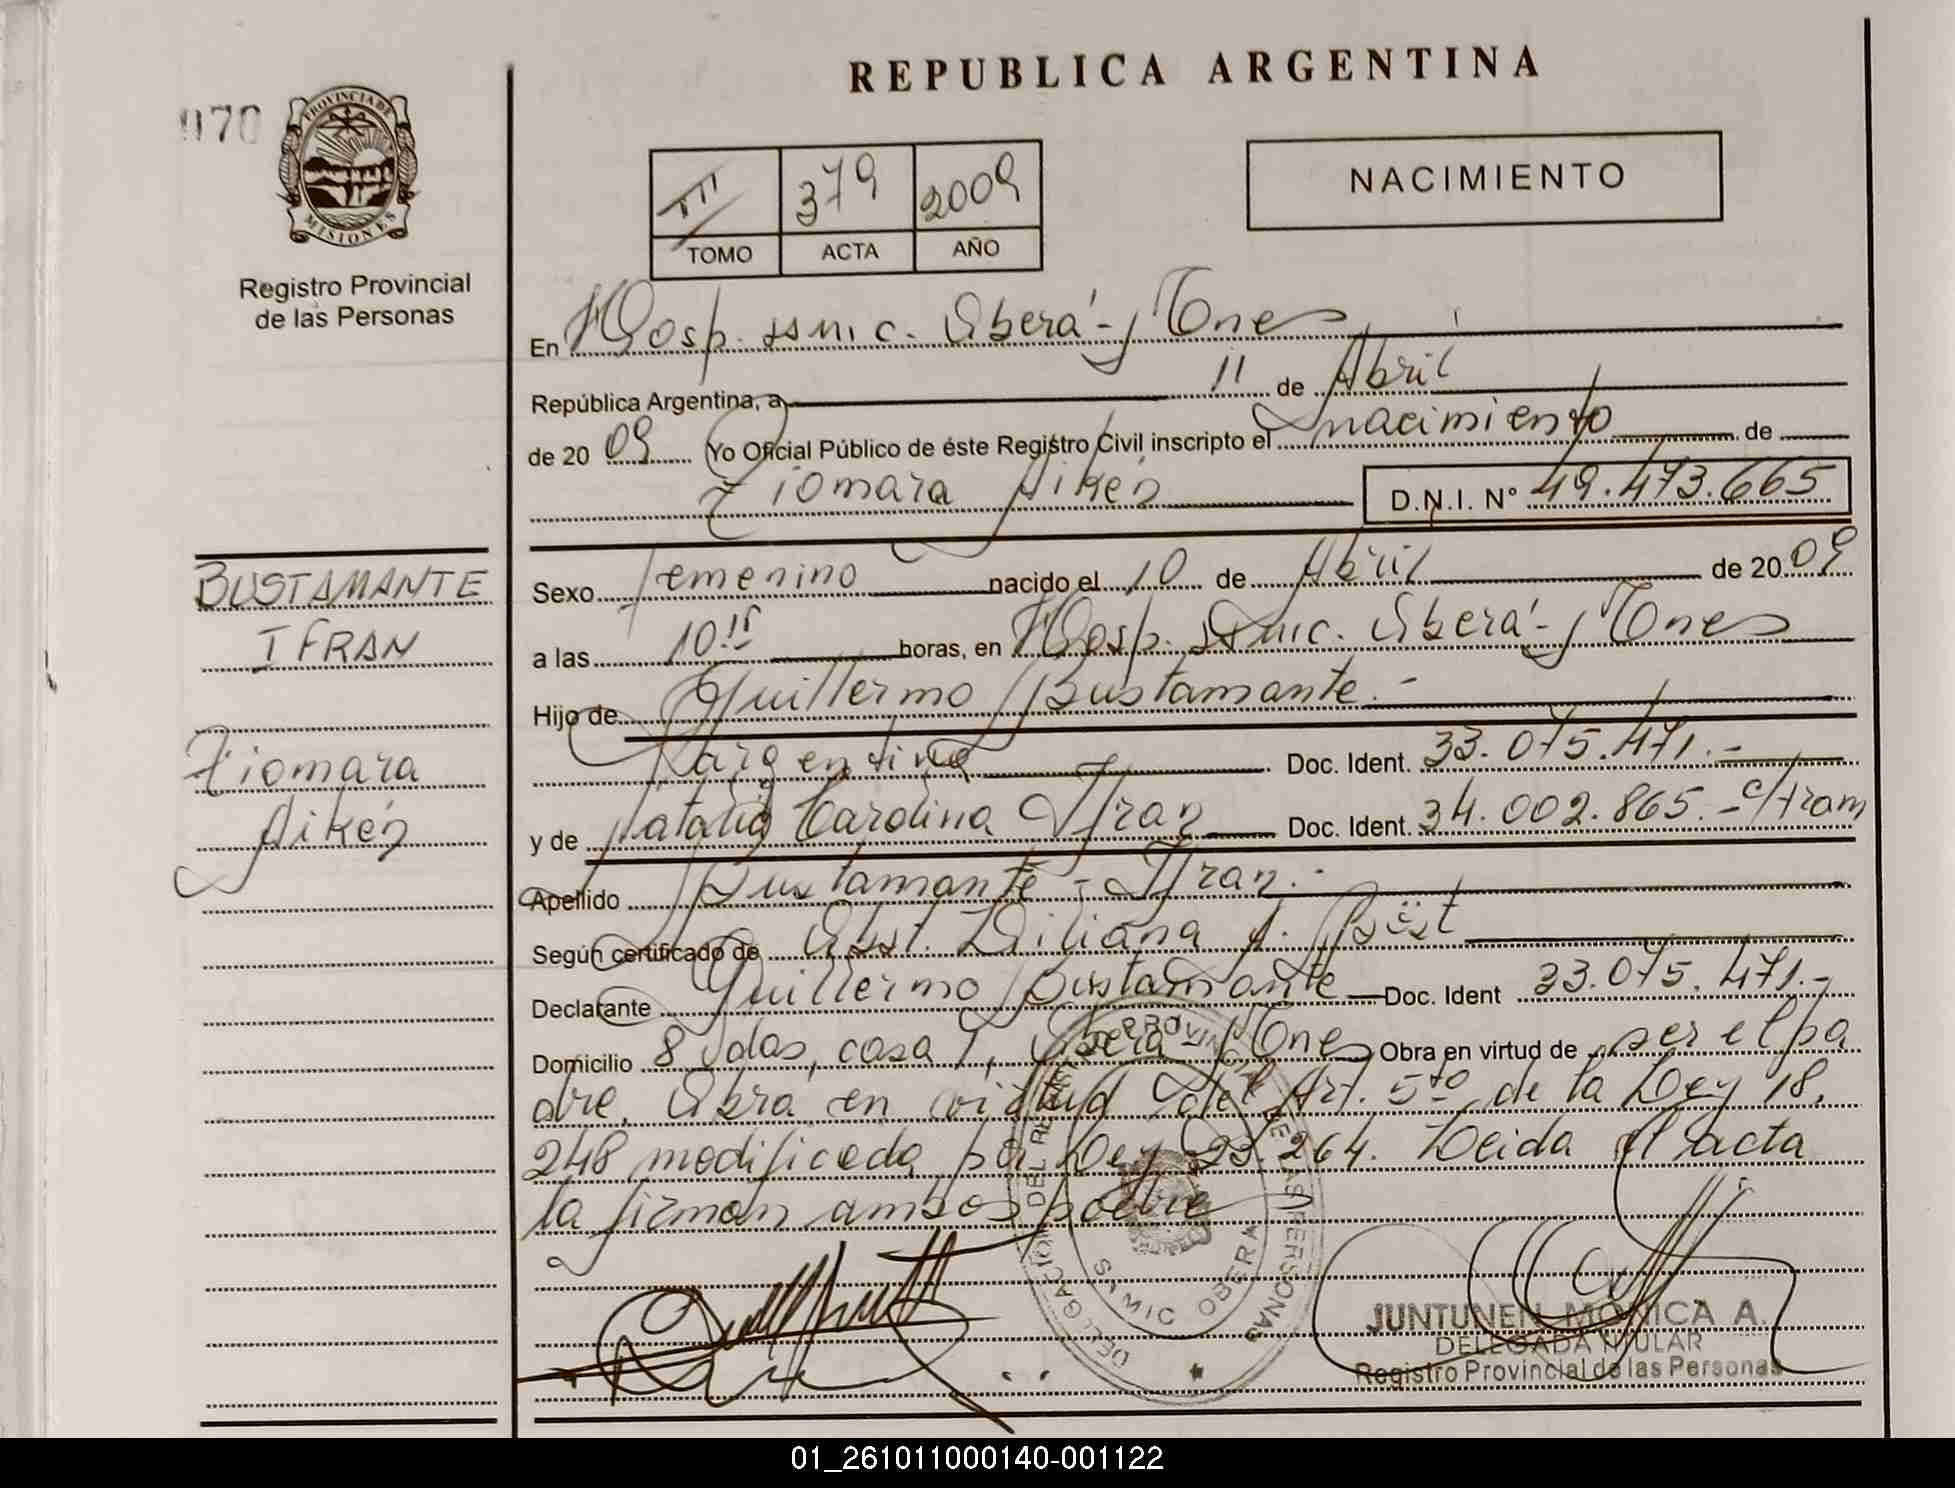 REPUBLICA ARGENTINA
070
PROVINCIA DE
MISIONES
Registro Provincial
de las Personas
III 379 2009
TOMO ACTA AÑO
NACIMIENTO
En Hosp. SAMIC. Oberá - Mnes
República Argentina, a 11 de Abril
de 2009 Yo Oficial Público de éste Registro Civil inscripto el nacimiento de
Xiomara Aikén D.N.I. Nº 49.473.665
BUSTAMANTE
IFRAN
Xiomara
Aikén
Sexo femenino nacido el 10 de Abril de 2009
a las 10:15 horas, en Hosp. SAMIC. Oberá - Mnes
Hijo de Guillermo Bustamante.-
argentino Doc. Ident. 33.075.471.-
y de Natalia Carolina Ifran Doc. Ident. 34.002.865.- c/tram
Apellido Bustamante - Ifran.-
Según certificado de Obst. Liliana A.
Declarante Guillermo Bustamante Doc. Ident 33.075.471.-
Domicilio 8 Vdas, casa 1, Oberá Mnes Obra en virtud de ser el pa
dre. Obra en virtud del Art. 5to de la Ley 18.
248 modificada por Ley 23.264. Leida el acta
la firman ambos padre
DELEGACION DEL REGISTRO PROVINCIAL DE LAS PERSONAS
SAMIC OBERA
JUNTUNEN MONICA A.
DELEGADA TITULAR
Registro Provincial de las Personas
01_261011000140-001122